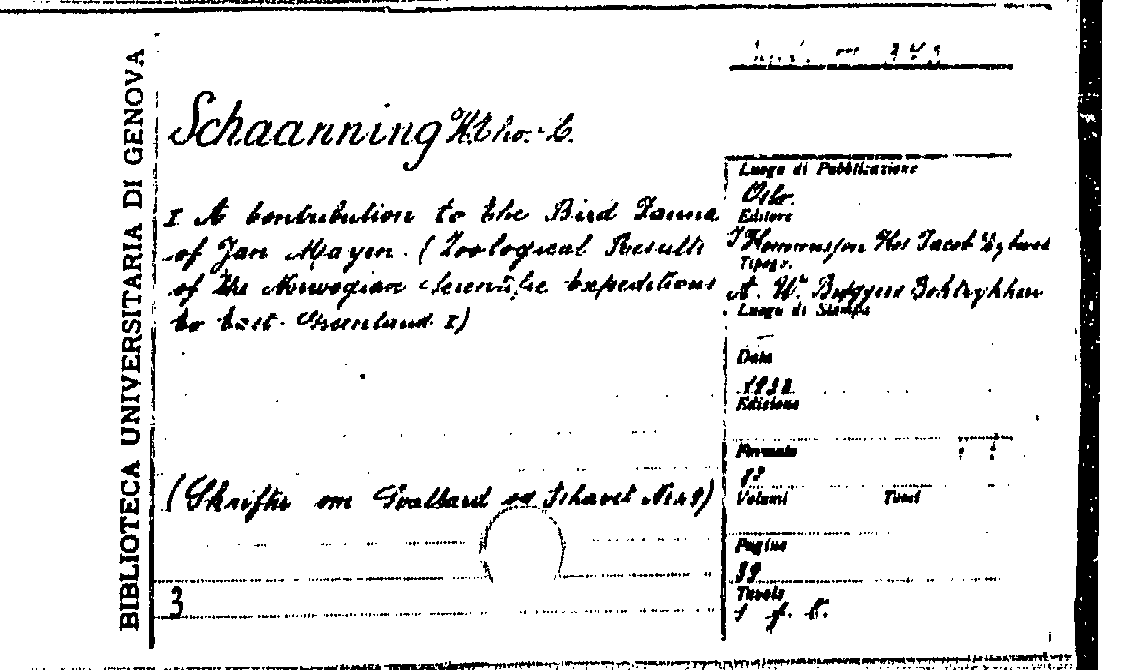 BIBLIOTECA UNIVERSITARIA DI GENOVA
Schaanning H. Tho. L.
I A Contribution to the Bird Fauna
of Jan Mayen. (Zoological Results
of the Norwegian Scientific Expeditions
to East-Greenland. I)
(Skrifter om Svalbard og Ishavet Nr 49)
3
Luogo di Pubblicazione
Oslo.
Editore
Hos Jacob Dybwad
Tipogr.
A. W. Brøggers Boktrykkeri
Luogo di Stampa
Data
Edizione
Formato
Volumi Tomi
Pagine
Tavole